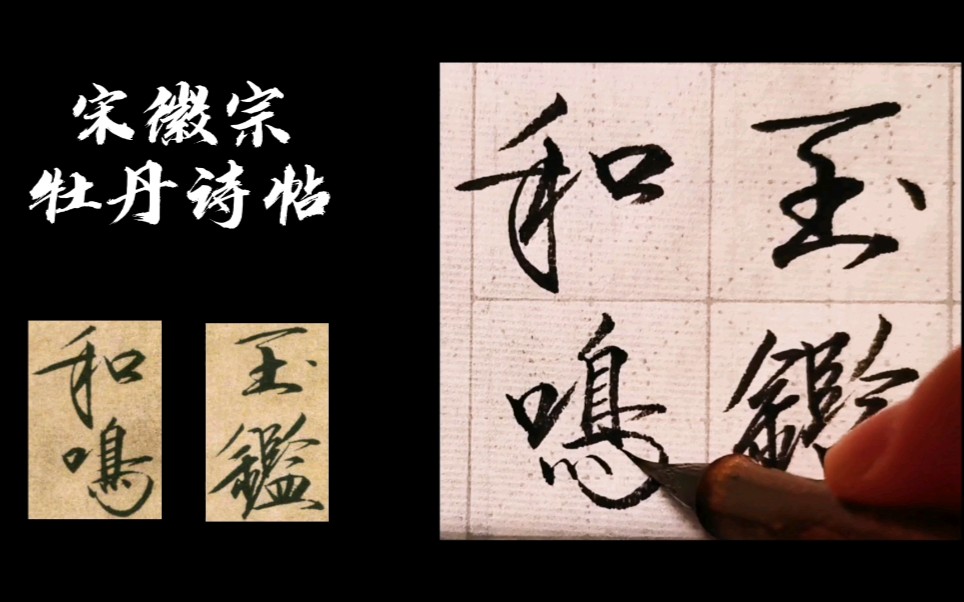 宋徽宗
牡丹诗帖
和鳴
玉鑑
玉鑑
和鳴